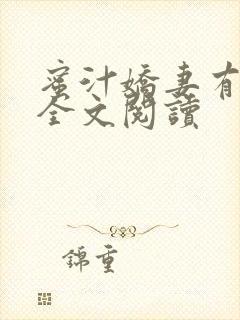 蜜汁嬌妻有
全文閱讀
錦重